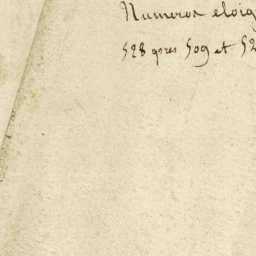 Numeros eloig
528 apres 509 et 52